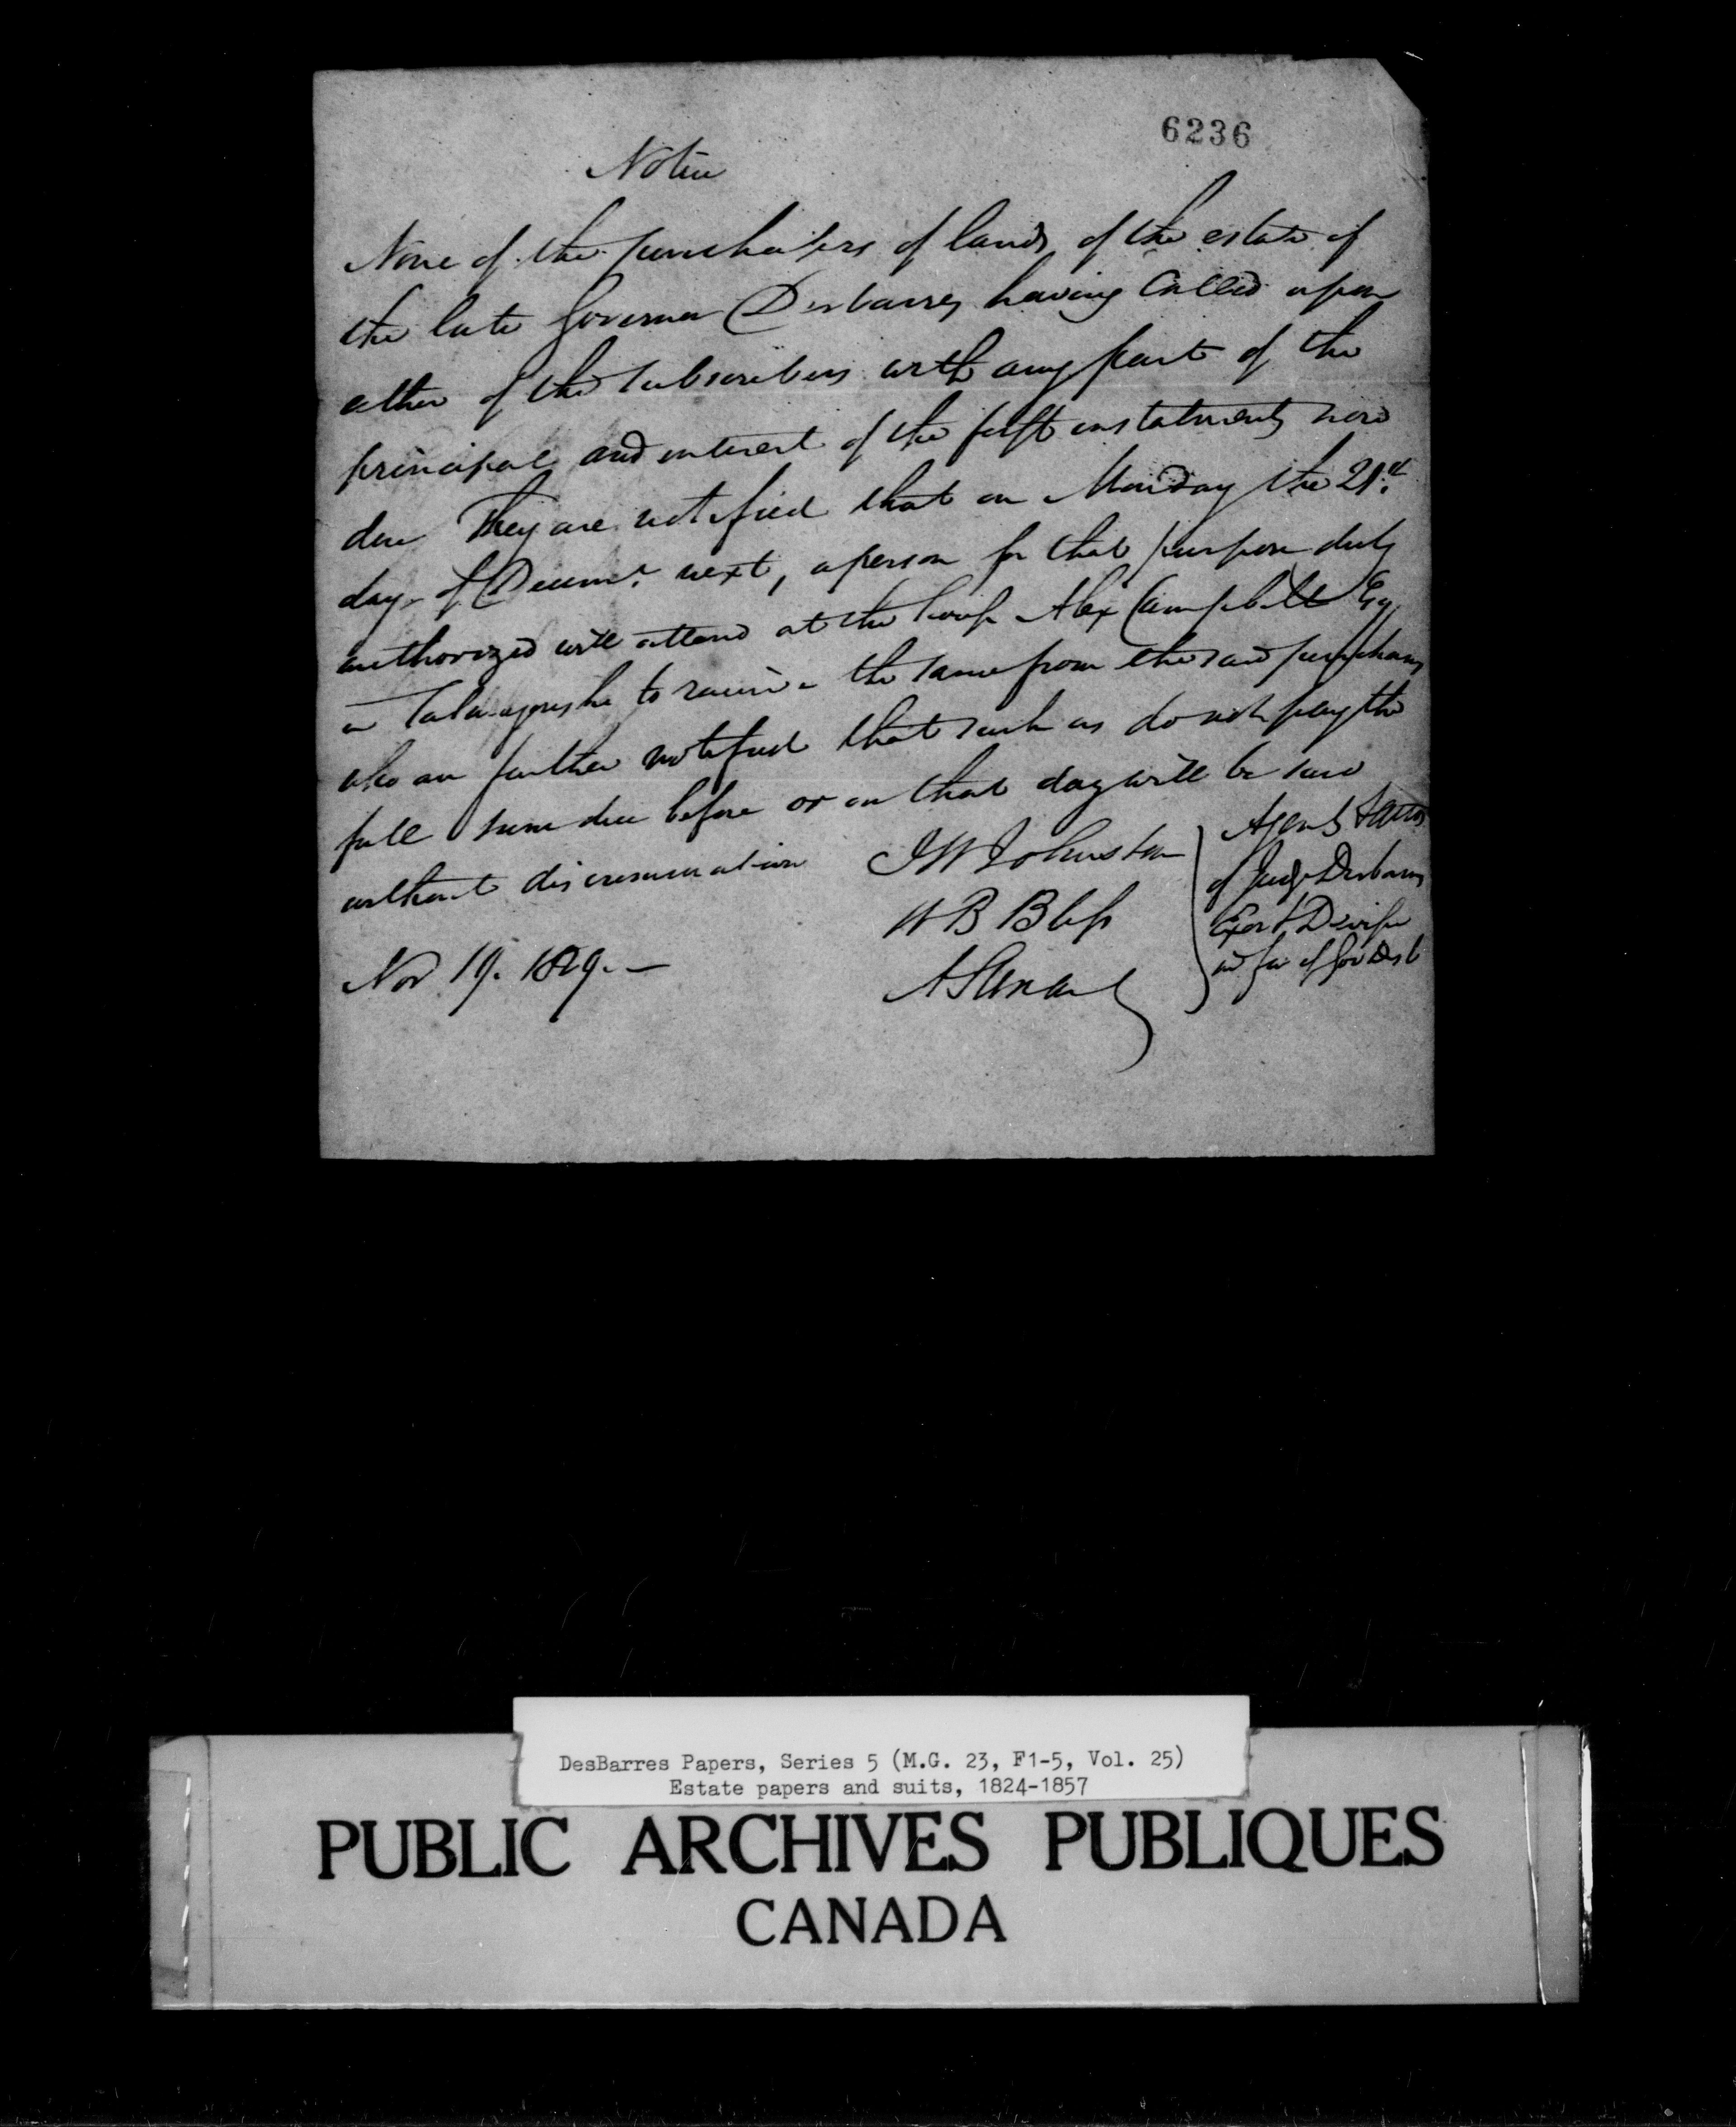 6236
Notice
None of the purchasers of lands of the estate of
the late Governor Desbarres having Called upon
either of the Subscribers with any part of the
principal and interest of the first instalments now
due They are notified that on Monday the 21st
day of Decemr. next, a person for that purpose duly
authorized will attend at the house Alex Campbell Esq
in Tatamagouche to receive the same from the said purchasers
who are further notified that such as do not pay the
full sum due before or on that day will be sued
without discrimination
JW Johnston
W B Bliss
A Stewart
Agents & Attos
of Judge Desbarres
Exor & Devisee
of Gov Desb
Nov 19. 1829. —
DesBarres Papers, Series 5 (M.G. 23, F1-5, Vol. 25)
Estate papers and suits, 1824-1857
PUBLIC ARCHIVES PUBLIQUES
CANADA